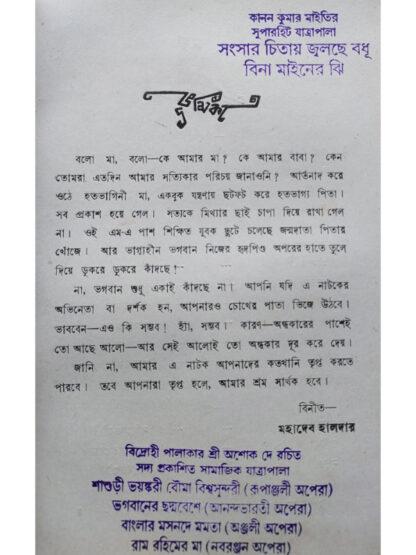 কানন কুমার মাইতির
সুপারহিট যাত্রাপালা
সংসার চিতায় জ্বলছে বধূ
বিনা মাইনের ঝি
ভূমিকা
বলো মা, বলো—কে আমার মা? কে আমার বাবা? কেন
তোমরা এতদিন আমার সত্যিকার পরিচয় জানাওনি? আর্তনাদ করে
ওঠে হতভাগিনী মা, একবুক যন্ত্রণায় ছটফট করে হতভাগ্য পিতা।
সব প্রকাশ হয়ে গেল। সত্যকে মিথ্যার ছাই চাপা দিয়ে রাখা গেল
না। ওই এম-এ পাশ শিক্ষিত যুবক ছুটে চলেছে জন্মদাতা পিতার
খোঁজে। আর ভাগ্যহীন ভগবান নিজের হৃদপিণ্ড অপরের হাতে তুলে
দিয়ে ডুকরে ডুকরে কাঁদছে!
না, ভগবান শুধু একাই কাঁদছে না। আপনি যদি এ নাটকের
অভিনেতা বা দর্শক হন, আপনারও চোখের পাতা ভিজে উঠবে।
ভাববেন—এও কি সম্ভব! হ্যাঁ, সম্ভব। কারণ—অন্ধকারের পাশেই
তো আছে আলো—আর সেই আলোই তো অন্ধকার দূর করে দেয়।
জানি না, আমার এ নাটক আপনাদের কতখানি তৃপ্ত করতে
পারবে। তবে আপনারা তৃপ্ত হলে, আমার শ্রম সার্থক হবে।
বিনীত—
মহাদেব হালদার
বিদ্রোহী পালাকার শ্রী অশোক দে রচিত
সদ্য প্রকাশিত সামাজিক যাত্রাপালা
শাশুড়ী ভয়ঙ্করী বৌমা বিশ্বসুন্দরী (রূপাঞ্জলী অপেরা)
ভগবানের ছদ্মবেশে (আনন্দভারতী অপেরা)
বাংলার মসনদে মমতা (অঞ্জলী অপেরা)
রাম রহিমের মা (নবরঞ্জন অপেরা)